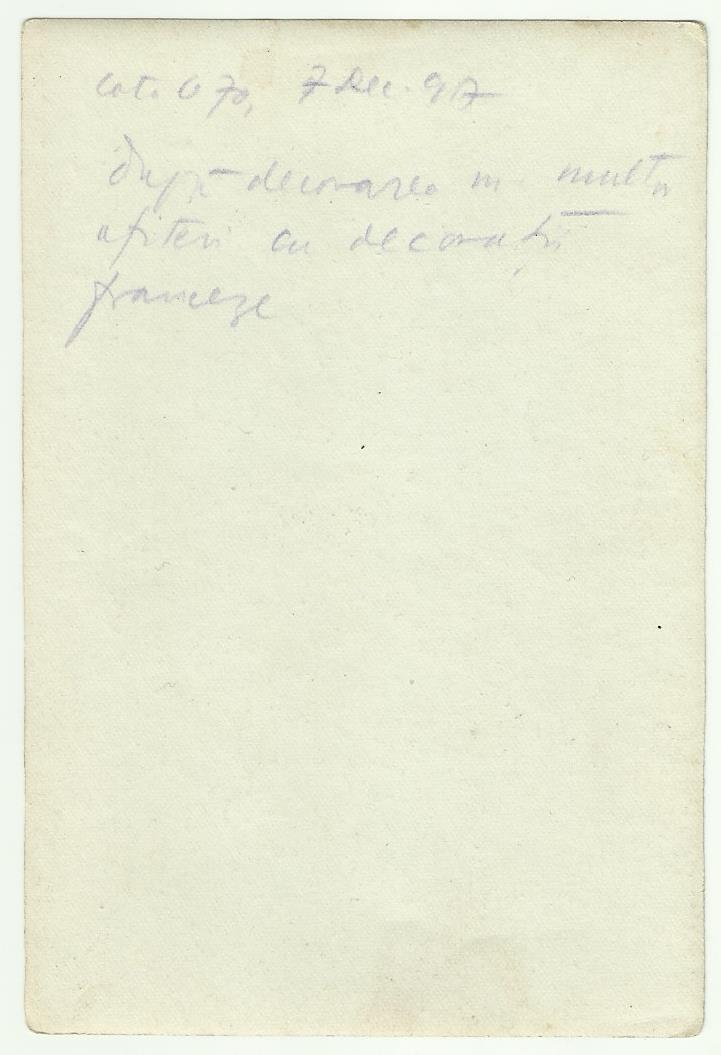 Cota 670, 7 Dec. 917
După decorarea m. multor
ofiteri cu decorații
franceze